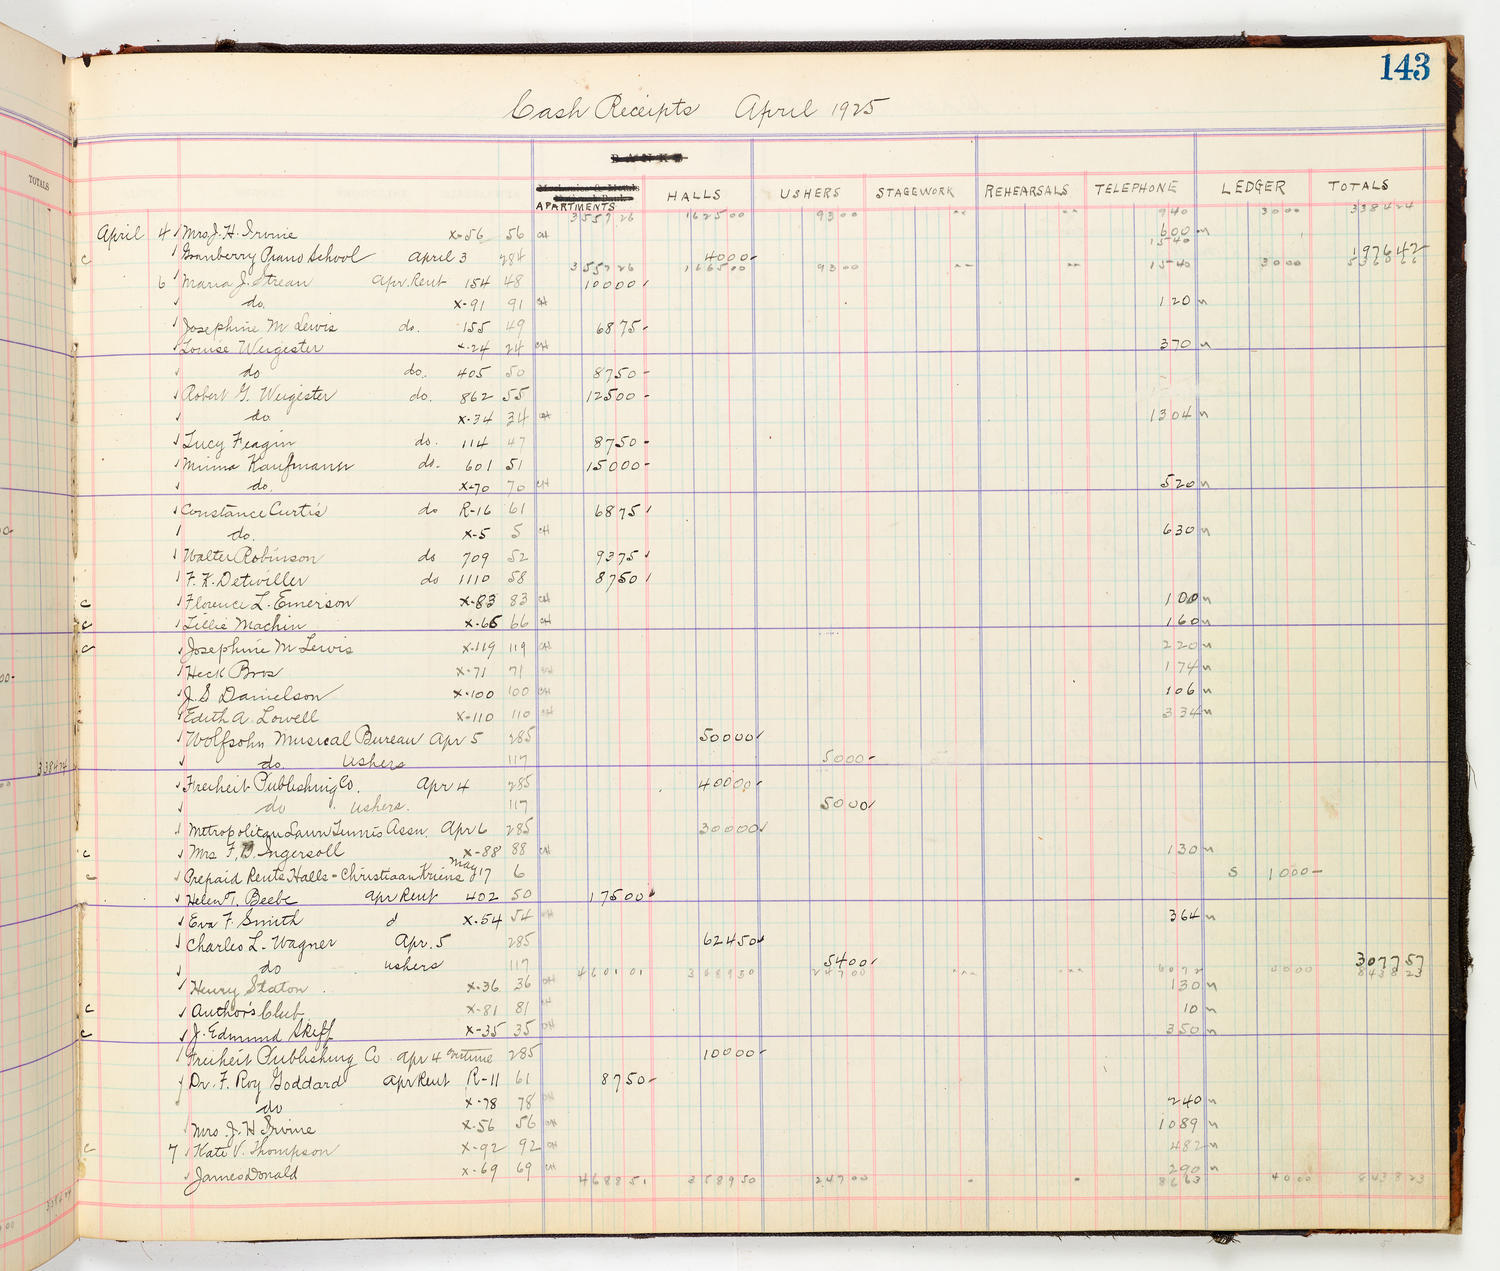 143
Cash Receipts April 1925
TOTALS
BANKS
APARTMENTS HALLS USHERS STAGEWORK REHEARSALS TELEPHONE LEDGER TOTALS
355726 162500 9300 940 3000 338424
April 4 Mrs J. H. Irvine X-56 56 CH 600
1540
C Granberry Piano School April 3 284 4000 197642
355726 166500 9300 1540 3000 536066
6 Maria J. Strean Apr. Rent 154 48 10000
do. X-91 91 CH 120
Josephine M Lewis do. 155 49 6875
Louise Weigester X-24 24 CH 370
do do. 405 50 8750
Robert G. Weigester do. 862 55 12500
do X-34 34 CH 1304
Lucy Feagin do. 114 47 8750
Minna Kaufmann do. 601 51 15000
do. X-70 70 CH 520
Constance Curtis do R-16 61 6875
do. X-5 5 CH 630
Walter Robinson do 709 52 9375
F. K. Detwiller do 1110 58 8750
C Florence L. Emerson X-83 83 CH 100
C Lillie Machin X-66 66 CH 160
C Josephine M Lewis X-119 119 CH 220
Heck Bros X-71 71 CH 174
J. S Danielson X-100 100 CH 106
Edith A. Lowell X-110 110 CH 334
Wolfsohn Musical Bureau Apr 5 285 50000
do. Ushers 117 5000
338424
Freiheit Publishing Co. Apr 4 285 40000
do ushers. 117 5000
Metropolitan Lawn Tennis Assn. Apr 6 285 30000
C Mrs F. D. Ingersoll X-88 88 CH 130
C Prepaid Rents Halls - Christiaan Kriens May 17 6 S 1000
Helen T. Beebe Apr Rent 402 50 17500
Eva F. Smith d X-54 54 CH 364
Charles L. Wagner Apr. 5 285 62450
do ushers 117 5400 307757
460101 358950 24700 6072 4000 843823
Henry Staton X-36 36 CH 130
C Author's Club X-81 81 CH 10
C J. Edmund Skiff X-35 35 CH 350
Freiheit Publishing Co Apr 4 285 10000
Dr. F. Roy Goddard Apr Rent R-11 61 8750
do X-78 78 CH 240
Mrs. J. H Irvine X-56 56 CH 1089
C 7 Kate V. Thompson X-92 92 CH 482
James Donald X-69 69 CH 290
468851 358950 24700 8663 4000 843823